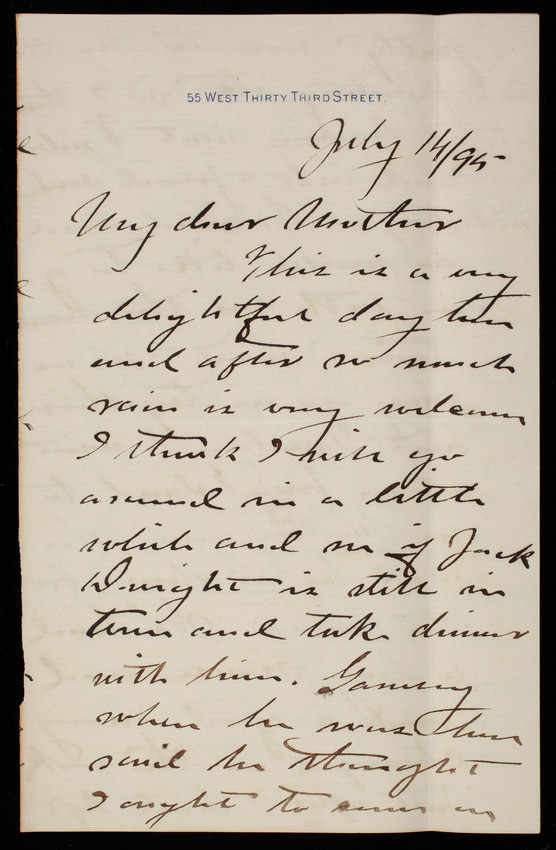 55 WEST THIRTY THIRD STREET.
July 14/95
My dear Mother
This is a very
delightful day here
and after so much
rain is very welcome
I think I will go
around in a little
while and see if Jack
Dwight is still in
town and take dinner
with him.
when he was here
said he thought
I ought to come on